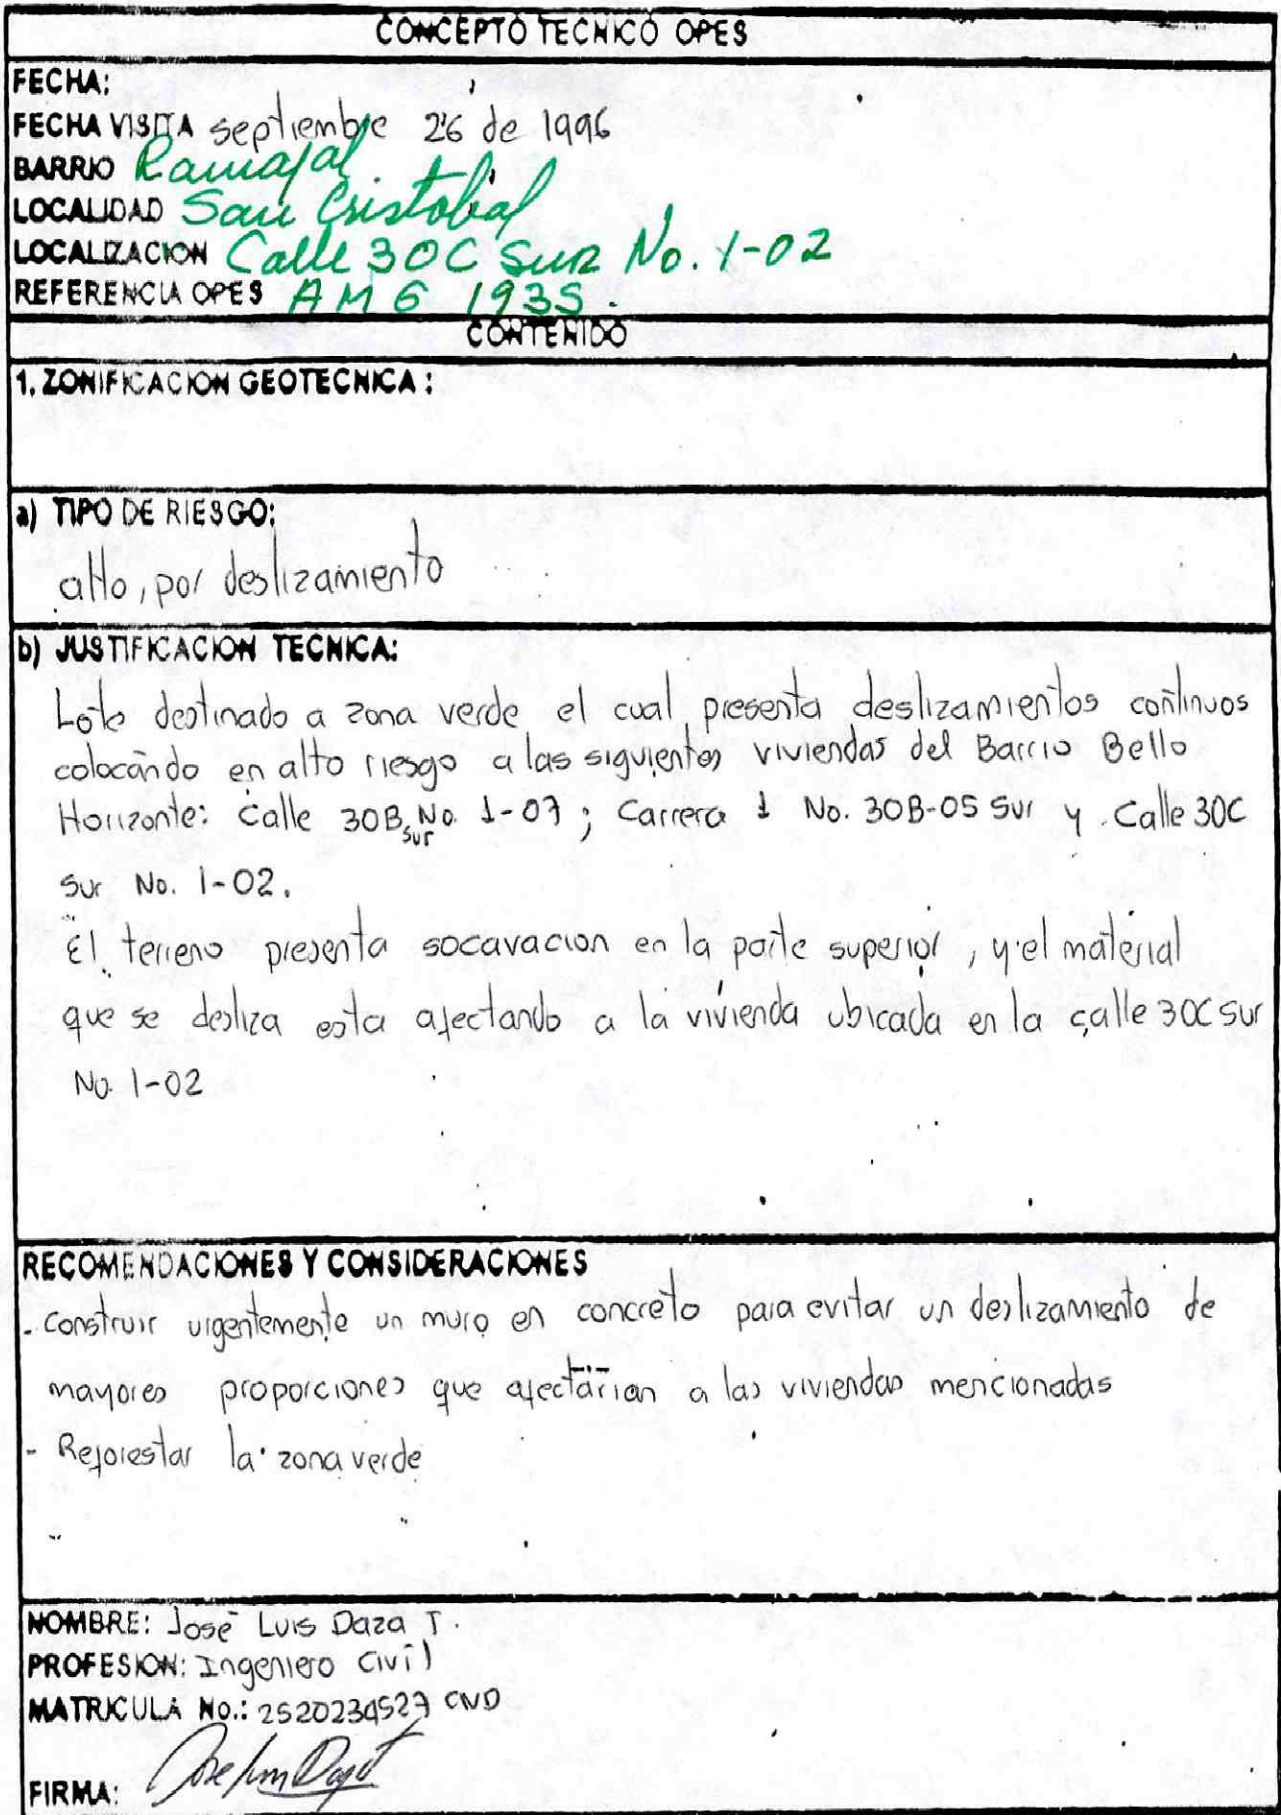 CONCEPTO TECNICO OPES
FECHA:
FECHA VISITA septiembre 26 de 1996
BARRIO Ramajal.
LOCALIDAD San Cristobal
LOCALIZACION Calle 30C SUR No. 1-02
REFERENCIA OPES AMG 1935.
CONTENIDO
1. ZONIFICACION GEOTECNICA:
a) TIPO DE RIESGO:
alto, por deslizamiento
b) JUSTIFICACION TECNICA:
Lote destinado a zona verde el cual presenta deslizamientos continuos
colocando en alto riesgo a las siguientes viviendas del Barrio Bello
Horizonte: Calle 30B sur No. 1-07; Carrera 1 No. 30B-05 Sur y Calle 30C
Sur No. 1-02.
El terreno presenta socavacion en la parte superior, y el material
que se desliza esta afectando a la vivienda ubicada en la calle 30C sur
No. 1-02
RECOMENDACIONES Y CONSIDERACIONES
- Construir urgentemente un muro en concreto para evitar un deslizamiento de
mayores proporciones que afectarian a las viviendas mencionadas
- Reforestar la zona verde
NOMBRE: José Luis Daza T.
PROFESION: Ingeniero Civil
MATRICULA No.: 2520234527 CND
FIRMA: